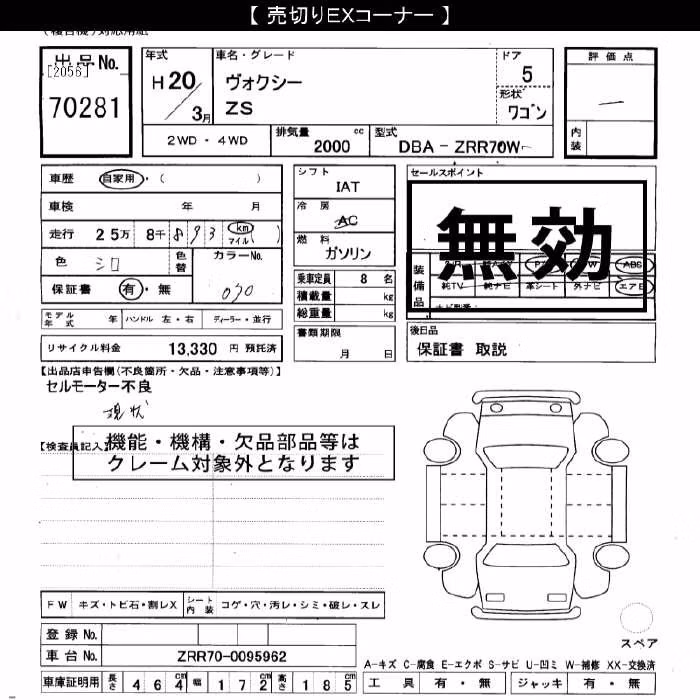 【 売切りEXコーナー 】
出品No.
[2056]
70281
年式
H20/3月
車名・グレード
ヴォクシー
ZS
ドア
5
形状
ワゴン
評価点
―
内装
2WD・4WD
排気量 2000 cc
型式 DBA－ZRR70W
車歴 自家用・( )
車検 年 月
走行 25万 8千 893 km マイル ( )
色 シロ 色替
カラーNo. 070
保証書 有・無
モデル年式 年 ハンドル 左・右 ディーラー・並行
リサイクル料金 13,330 円 預託済
シフト
IAT
冷房
AC
燃料
ガソリン
乗車定員 8 名
積載量 kg
総重量 kg
書類期限
月 日
セールスポイント
無効
装備品
ABS
純TV 純ナビ 革シート 外ナビ エアB
後日品
保証書 取説
【出品店申告欄(不良箇所・欠品・注意事項等)】
セルモーター不良
現状
【検査員記入】
機能・機構・欠品部品等は
クレーム対象外となります
FW キズ・トビ石・割レX シート内装 コゲ・穴・汚レ・シミ・破レ・スレ
登録No.
車台No. ZRR70-0095962
車庫証明用 長さ 464cm 幅 172cm 高さ 185cm
スペア
A-キズ C-腐食 E-エクボ S-サビ U-凹ミ W-補修 XX-交換済
工具 有・無 ジャッキ 有・無